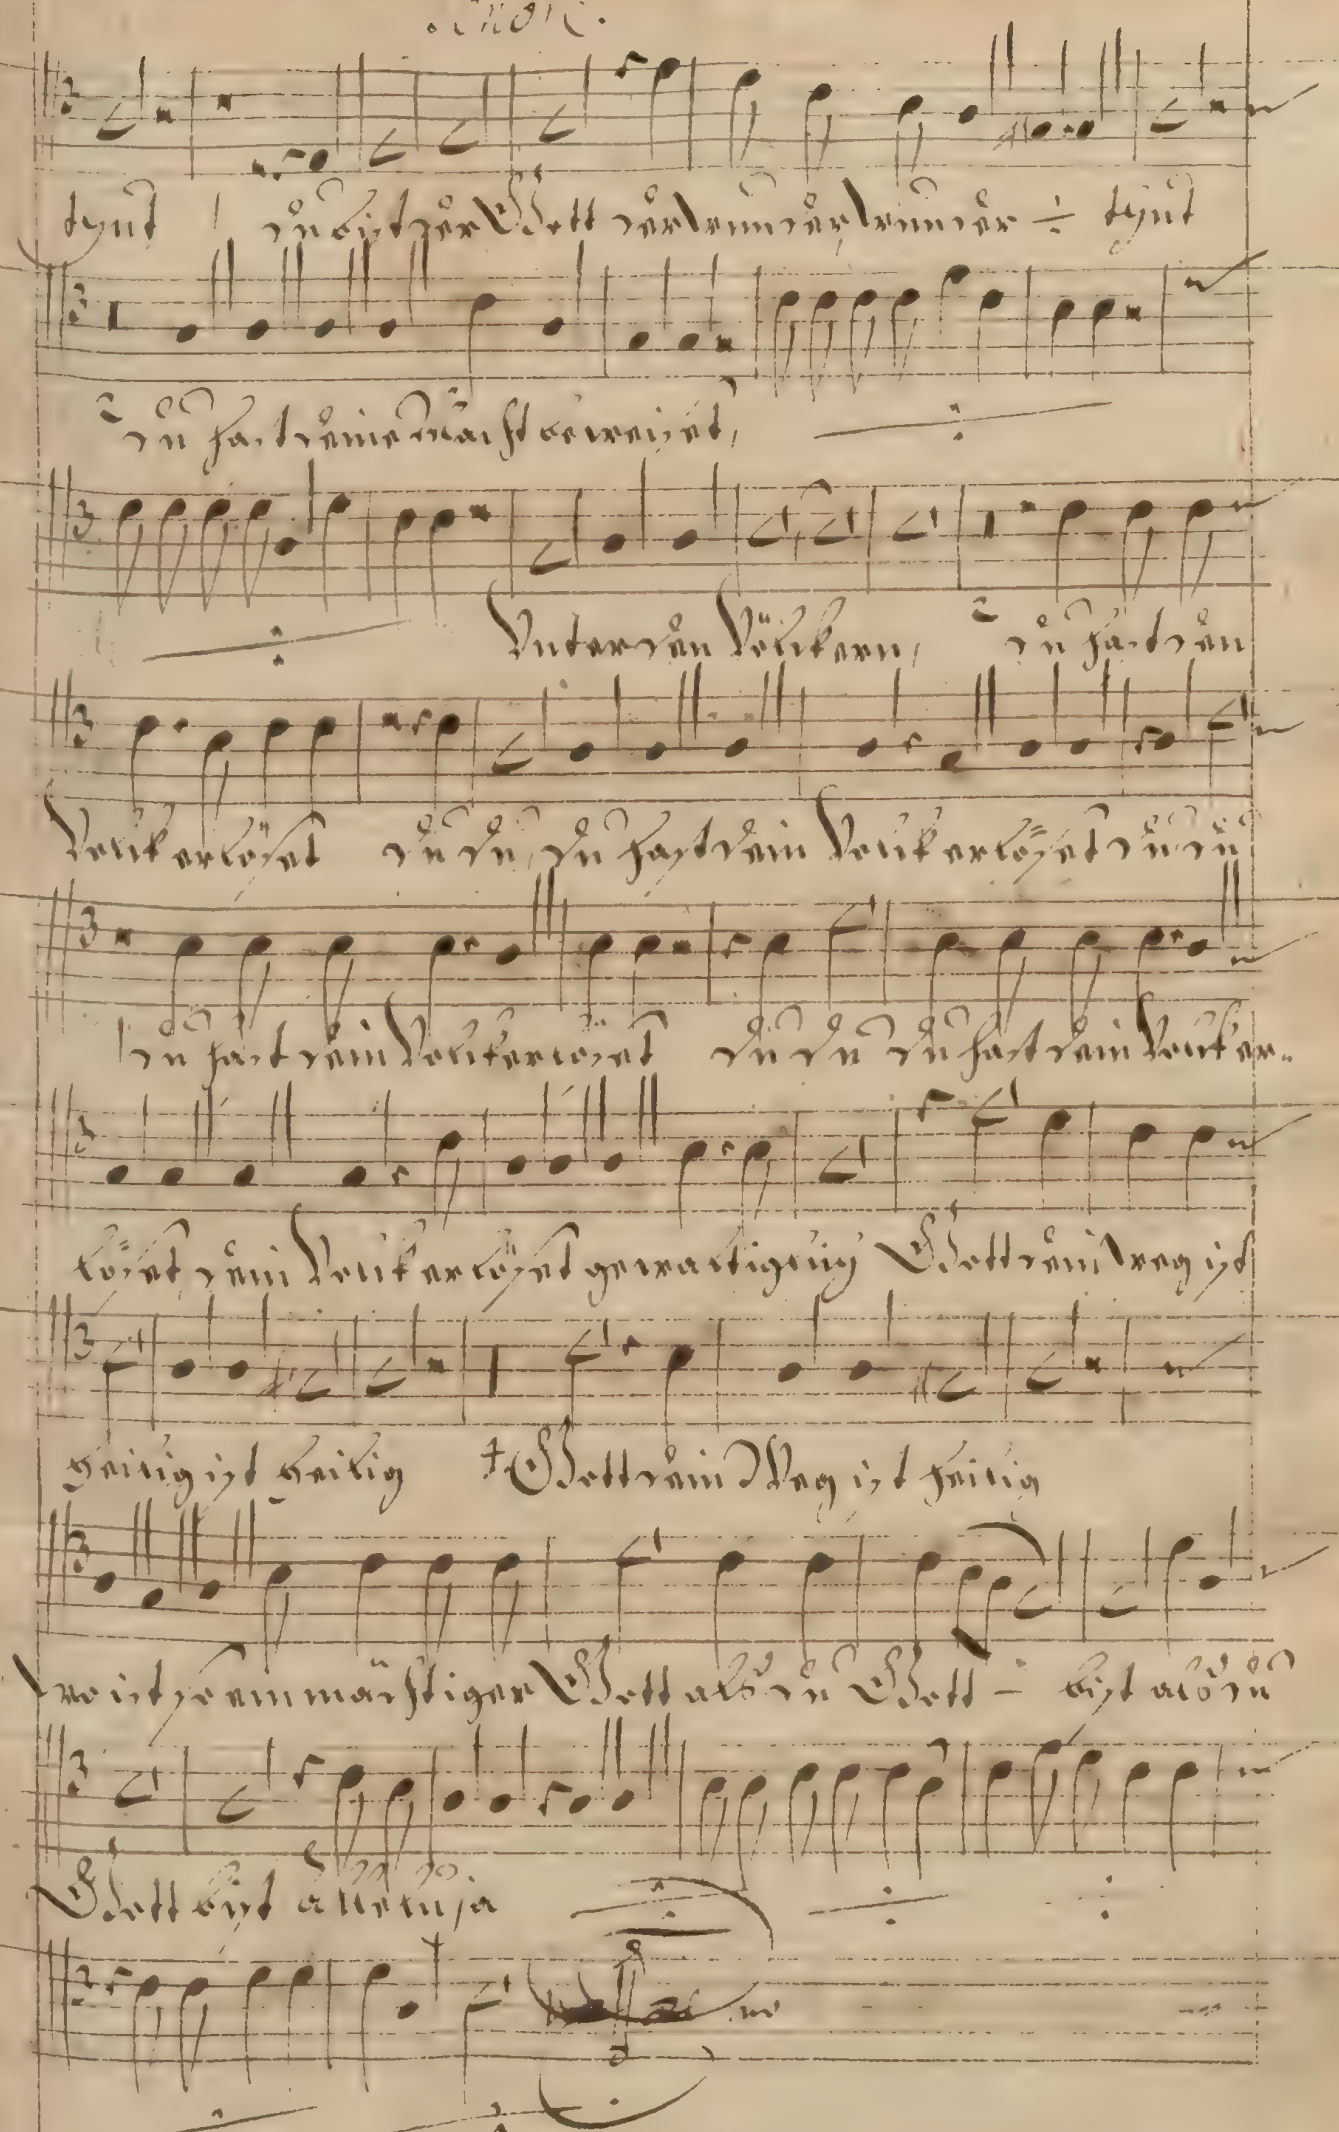 Tenor.
thut du bist der Gott der wunder wunder ÷ thut
du hast deine Macht beweiset,
Unter den Völckern, du hast dein
Volck erlöset du du, du hast dein Volck erlöset du du
du hast dein Volck erlöset du du du hast dein Volck er-
löset dein Volck erlöset gewaltiglich Gott dein weg ist
heilig ist heilig Gott dein Weg ist heilig
wo ist so ein mächtiger Gott alß du Gott bist alß du
Gott bist alleluja